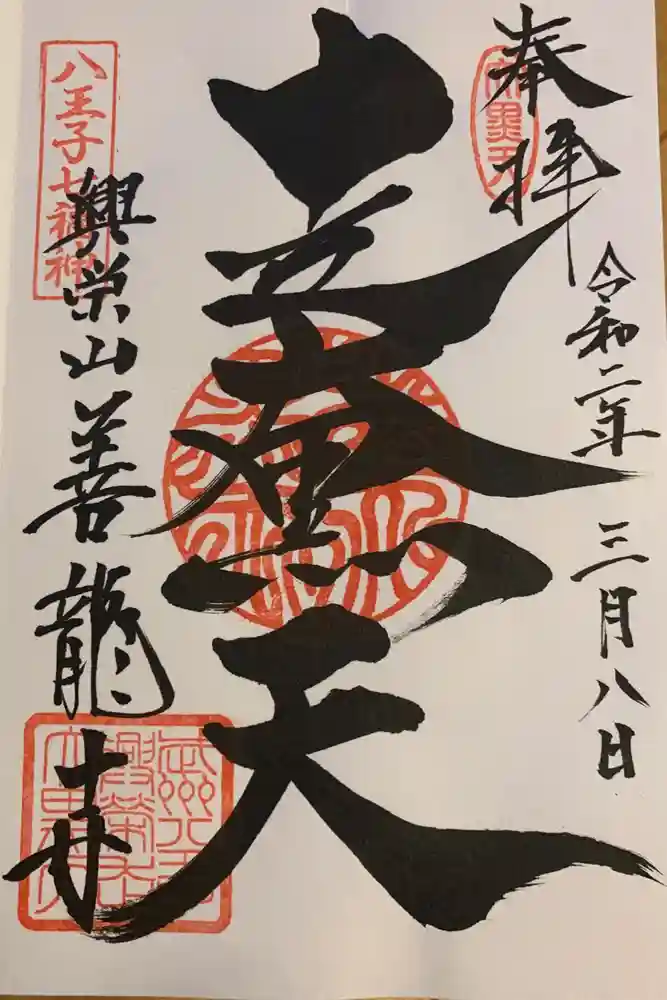 奉拝
令和二年 三月八日
走大黒天
八王子七福神
興栄山善龍寺